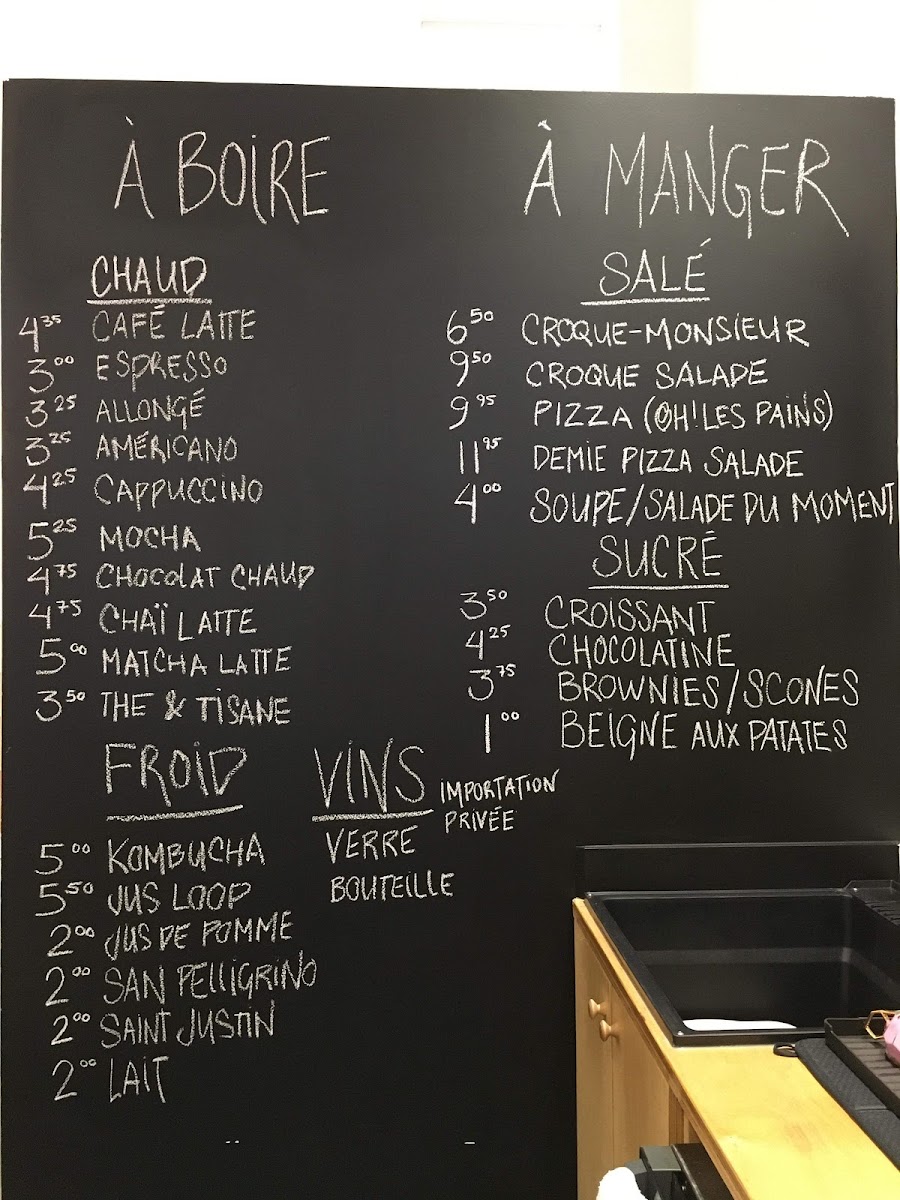 À BOIRE
CHAUD
4.35 CAFÉ LATTE
3.00 ESPRESSO
3.25 ALLONGÉ
3.25 AMÉRICANO
4.25 CAPPUCCINO
5.25 MOCHA
4.75 CHOCOLAT CHAUD
4.75 CHAÏ LATTE
5.00 MATCHA LATTE
3.50 THE & TISANE
FROID
5.00 KOMBUCHA
5.50 JUS LOOP
2.00 JUS DE POMME
2.00 SAN PELLIGRINO
2.00 SAINT JUSTIN
2.00 LAIT
VINS IMPORTATION
PRIVÉE
VERRE
BOUTEILLE
À MANGER
SALÉ
6.50 CROQUE-MONSIEUR
9.50 CROQUE SALADE
9.95 PIZZA (OH! LES PAINS)
11.95 DEMIE PIZZA SALADE
4.00 SOUPE/SALADE DU MOMENT
SUCRÉ
3.50 CROISSANT
4.25 CHOCOLATINE
3.75 BROWNIES/SCONES
1.00 BEIGNE AUX PATATES